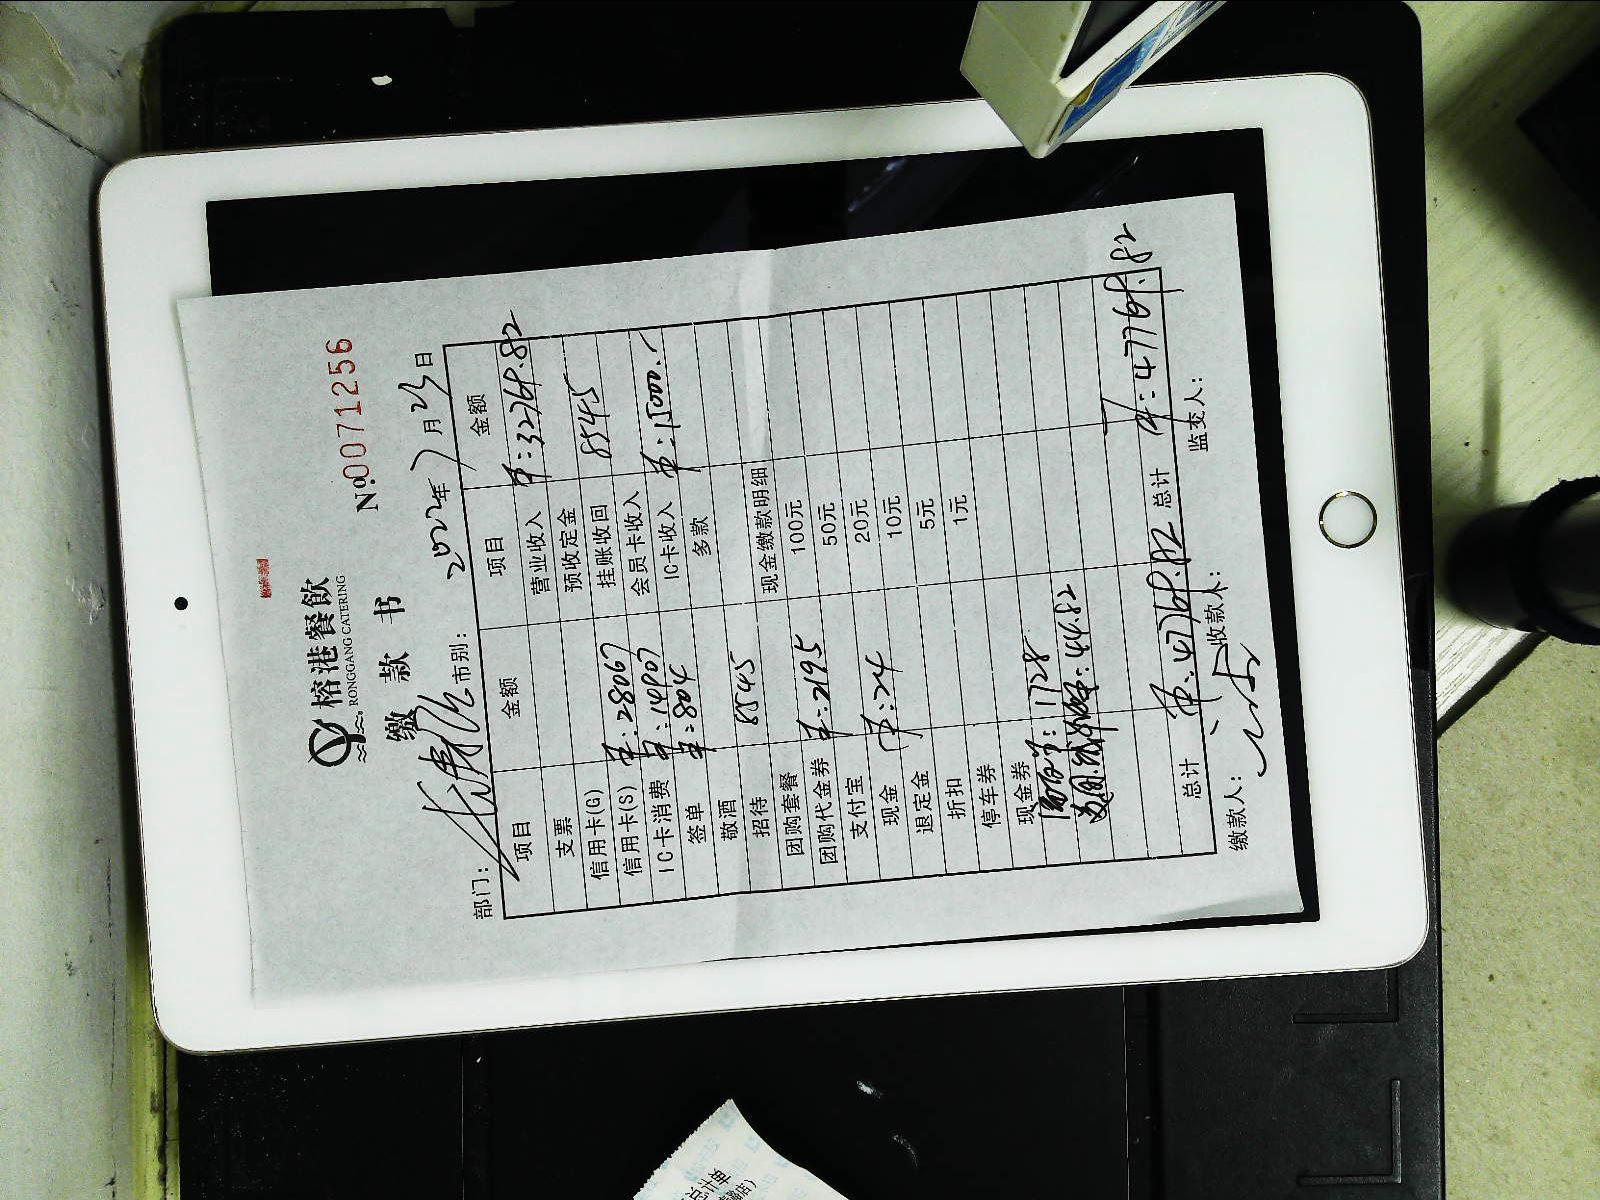 榕港餐飲
RONGGANG CATERING
缴 款 书
№0071256
部门： 市别： 2022年7月23日
项目 金额 项目 金额
支票 营业收入 32764.82
信用卡(G) 预收定金
信用卡(S) 28067 挂账收回 8545
IC卡消费 14907 会员卡收入
签单 804 IC卡收入 15000.
敬酒 多款
招待 8545
团购套餐 现金缴款明细
团购代金券 2195 100元
支付宝 50元
现金 24 20元
退定金 10元
折扣 5元
停车券 1元
现金券
1728
44.82
总计 47764.82 总计 47764.82
缴款人： 收款人： 监交人：